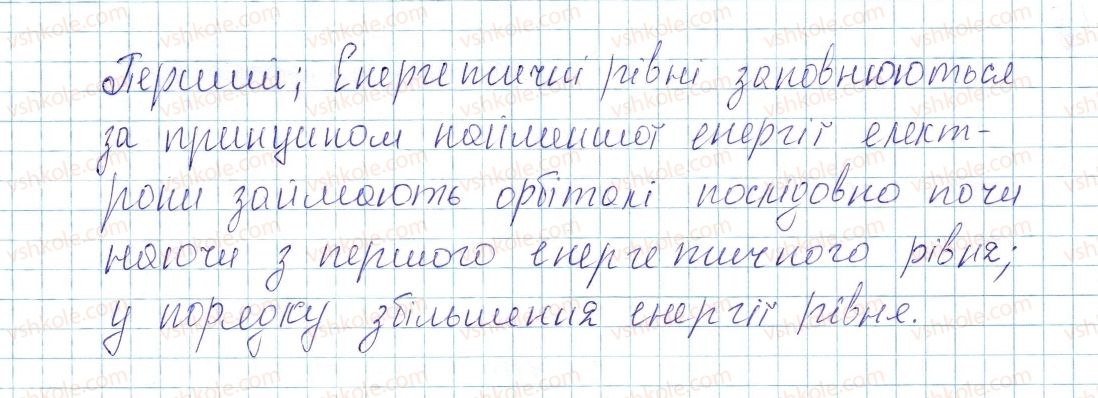 Перший; Енергетичні рівні заповнюються
за принципом найменшої енергії елект-
рони займають орбіталі послідовно почи
наючи з першого енергетичного рівня;
у порядку збільшення енергії рівня.